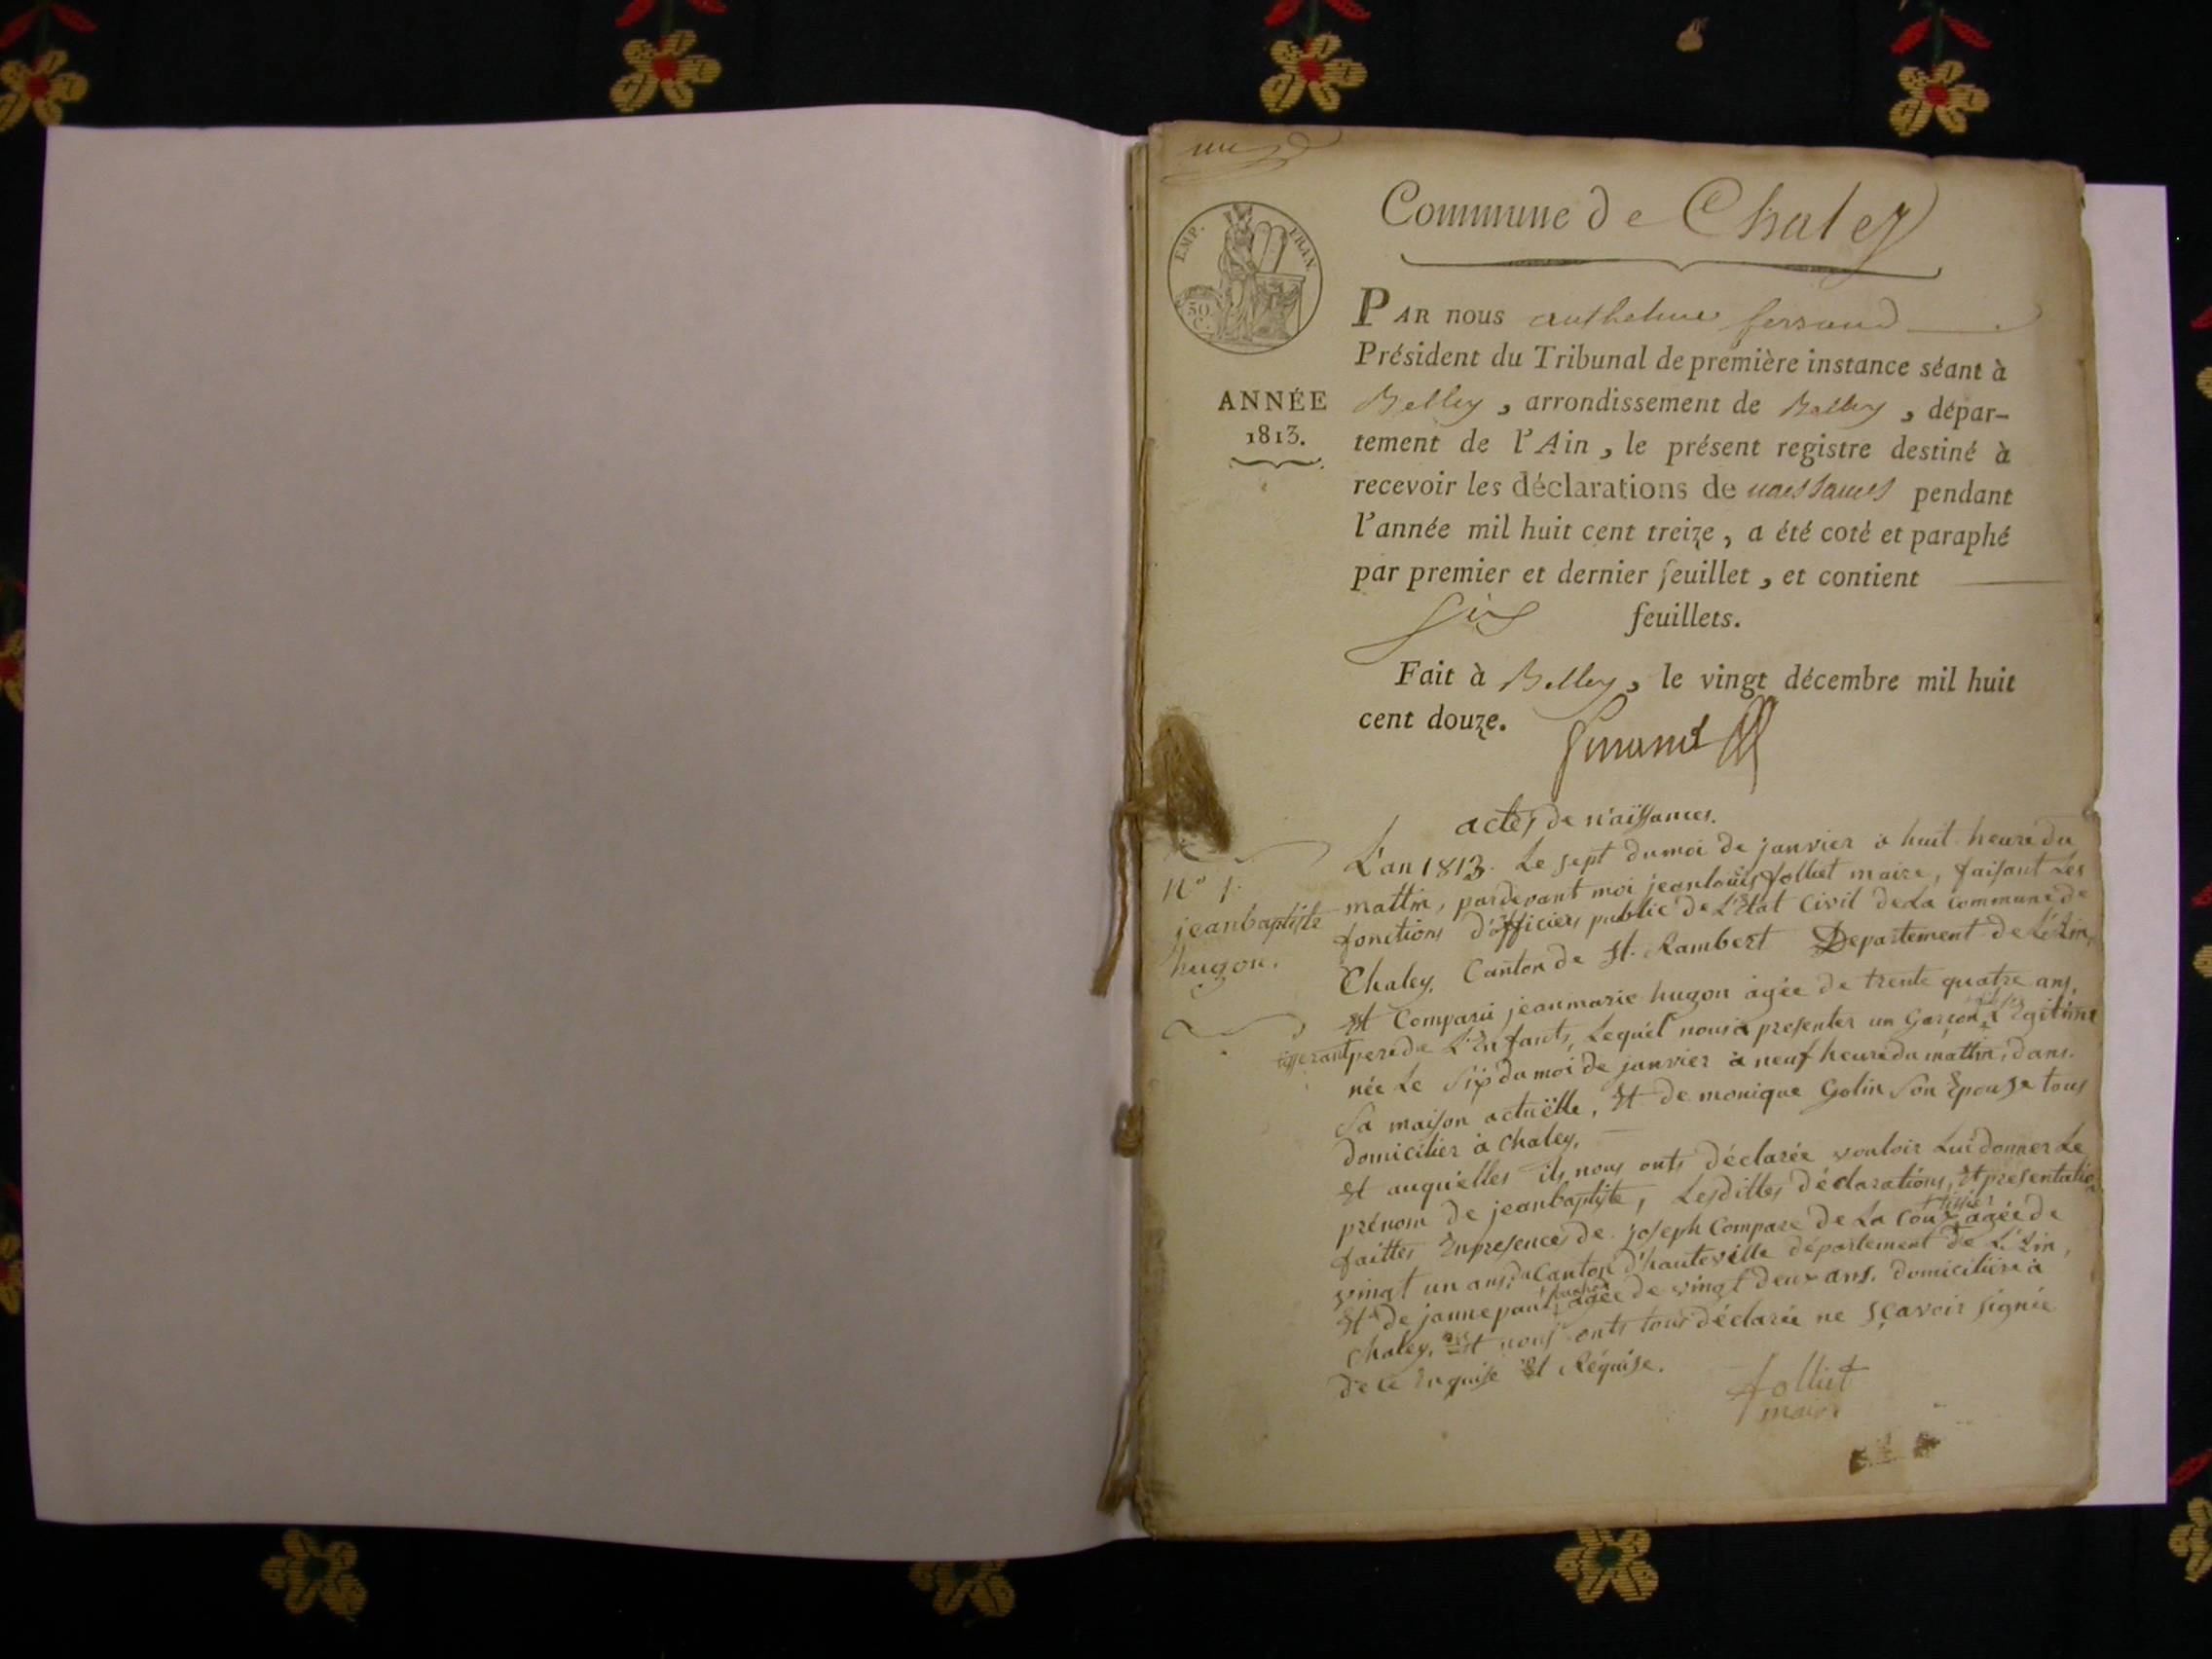 Commune de Chaley
EMP. FRAN.
50
C.
ANNÉE
1813.
PAR nous anthelme ferrand
Président du Tribunal de première instance séant à
Belley, arrondissement de Belley, dépar-
tement de l'Ain, le présent registre destiné à
recevoir les déclarations de naissances pendant
l'année mil huit cent treize, a été coté et paraphé
par premier et dernier feuillet, et contient
six feuillets.
Fait à Belley, le vingt décembre mil huit
cent douze.
actes de naissances.
N° 1.
jeanbaptiste
hugon.
L'an 1813. Le sept du moi de janvier à huit heure du
mattin, pardevant moi jeanlouis folliet maire, faisant Les
fonctions d'officiers public de L'Etat Civil de La Commune de
Chaley, Canton de St. Rambert Departement de L'Ain,
Et Comparu jeanmarie hugon agée de trente quatre ans,
tisserant pere de L'Enfants, Lequel nous a presenter un Garçon Legitime
née Le Six du moi de janvier à neuf heure du mattin, dans
Sa maison actuëlle, Et de monique Golin Son Epouse tous
domicilier à Chaley,
Et auquelles ils nous onts déclarée vouloir Lui donner Le
prénom de jeanbaptiste, Lesdittes déclarations, Et presentatio
faittes En presences de joseph Compare de La Coux tissier agée de
vingt un ans, du Canton d'hauteville département de L'Ain,
Et de janne paul agée de vingt deux ans, domicilière à
Chaley, Et nous onts tous déclarée ne sçavoir signée
de ce Enquise Et Réquise.
folliet
maire